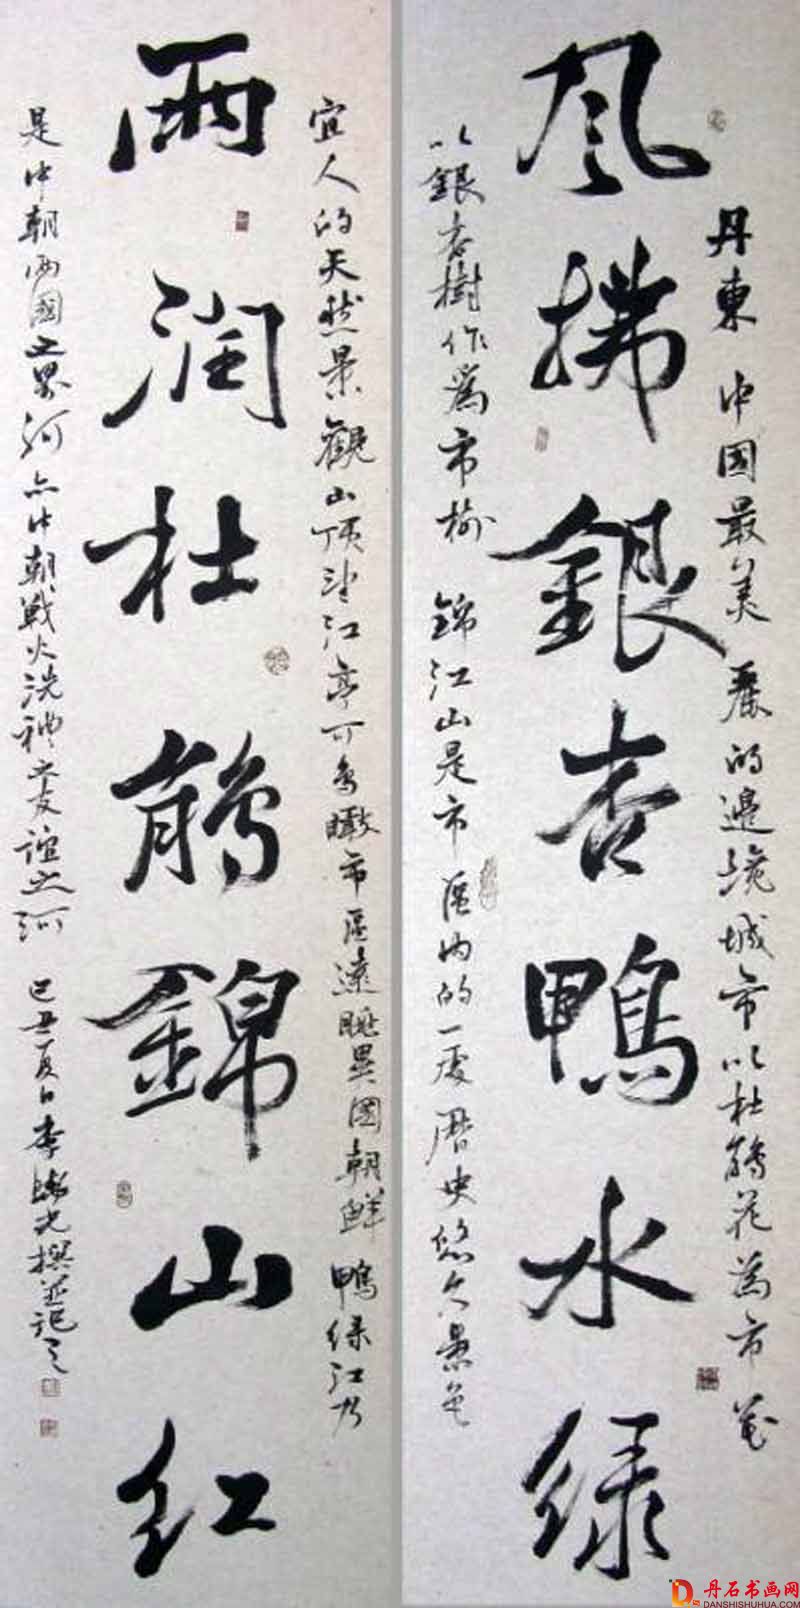 風拂銀杏鴨水绿
丹東中国最美麗的邊境城市以杜鵑花為市花
以銀杏樹作為市樹錦江山是市區內的一處歷史悠久景色
雨潤杜鵑錦山红
宜人的天然景觀山顶望江亭可鸟瞰市區遠眺異國朝鮮鴨绿江乃
是中朝两國之界河亦中朝戰火洗禮之友誼之河己丑夏日李光撰並記之
丹石书画网
DANSHISHUHUA.COM